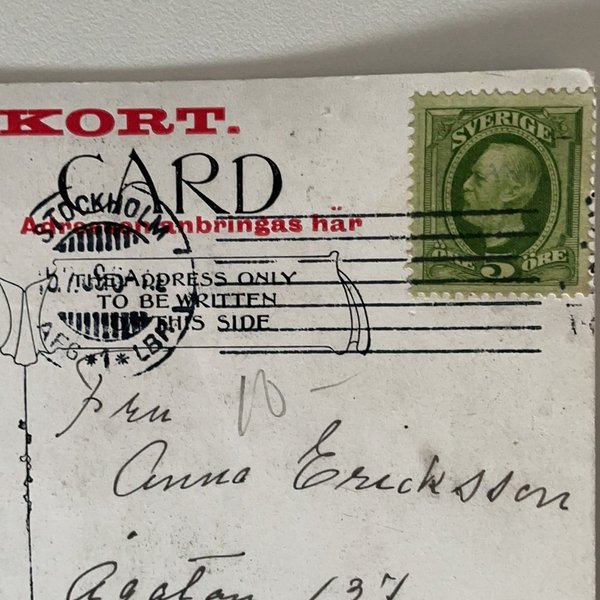 KORT.
CARD
Adressen anbringas här
SVERIGE
ÖRE 5 ÖRE
STOCKHOLM
AFG *1* LBR
THE ADDRESS ONLY
TO BE WRITTEN
THIS SIDE
10-
Fru
Anna Ericksson